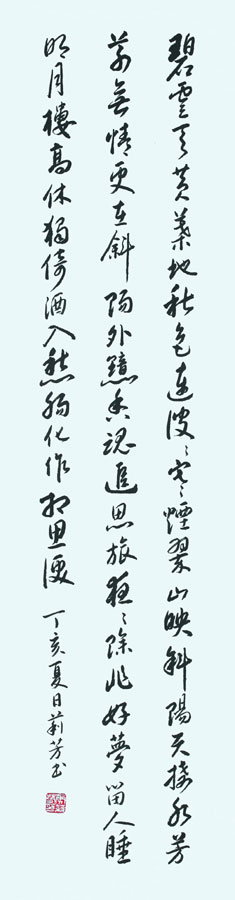 碧雲天黄葉地秋色連波〻寒煙翠山映斜陽天接水芳
草無情更在斜陽外黯鄉魂追思旅夜〻除非好夢留人睡
明月樓高休獨倚酒入愁腸化作相思淚 丁亥夏日莉芳书